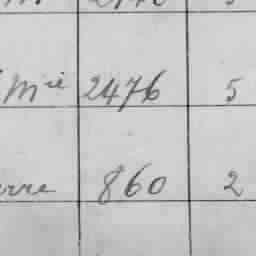 Mie 2476 5
erre 860 2